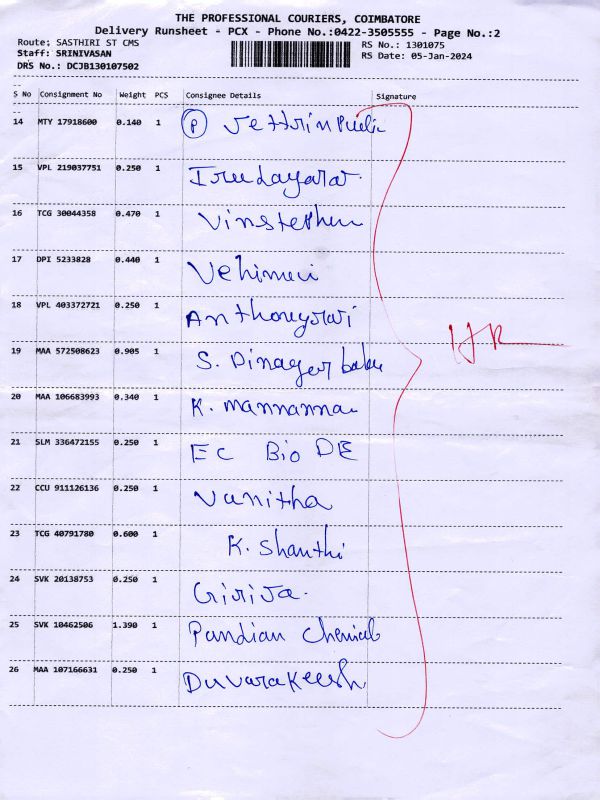 THE PROFESSIONAL COURIERS, COIMBATORE
Delivery Runsheet - PCX - Phone No.:0422-3505555 - Page No.:2
Route: SASTHIRI ST CMS RS No.: 1301075
Staff: SRINIVASAN RS Date: 05-Jan-2024
DRS No.: DCJB130107502
S No Consignment No Weight PCS Consignee Details Signature
14 MTY 17918600 0.140 1 (P)
15 VPL 219037751 0.250 1 Irudayaraj
16 TCG 30044358 0.470 1 Vinstephen
17 DPI 5233828 0.440 1
18 VPL 403372721 0.250 1
19 MAA 572508623 0.905 1 S. Dinager babu
20 MAA 106683993 0.340 1 K.
21 SLM 336472155 0.250 1 EC Bio DE
22 CCU 911126136 0.250 1 Vanitha
23 TCG 40791780 0.600 1 K. Shanthi
24 SVK 20138753 0.250 1 Girija.
25 SVK 10462506 1.390 1 Pandian Chemical
26 MAA 107166631 0.250 1 Duvarakeesh